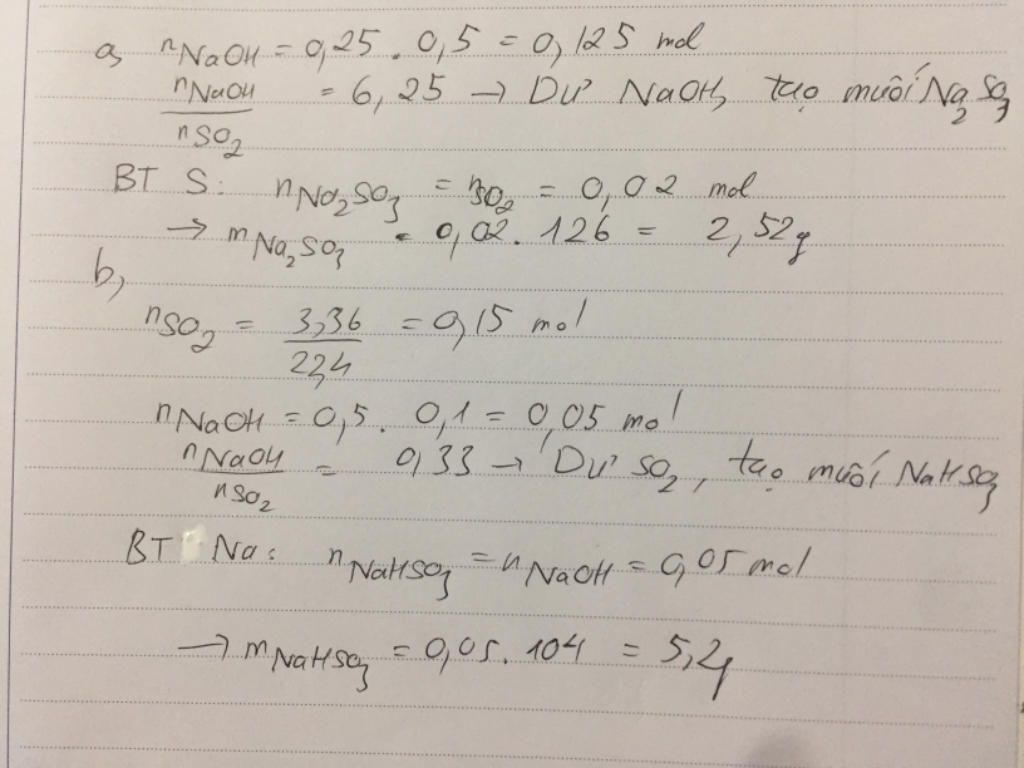 a, nNaOH = 0,25 . 0,5 = 0,125 mol
nNaOH
= 6,25 → Dư NaOH, tạo muối Na2SO3
nSO2
BT S: nNa2SO3 = nSO2 = 0,02 mol
→ mNa2SO3 = 0,02. 126 = 2,52g
b,
nSO2 = 3,36 = 0,15 mol
22,4
nNaOH = 0,5. 0,1 = 0,05 mol
nNaOH = 0,33 → Dư SO2, tạo muối NaHSO3
nSO2
BT Na: nNaHSO3 = nNaOH = 0,05 mol
→ mNaHSO3 = 0,05. 104 = 5,2g